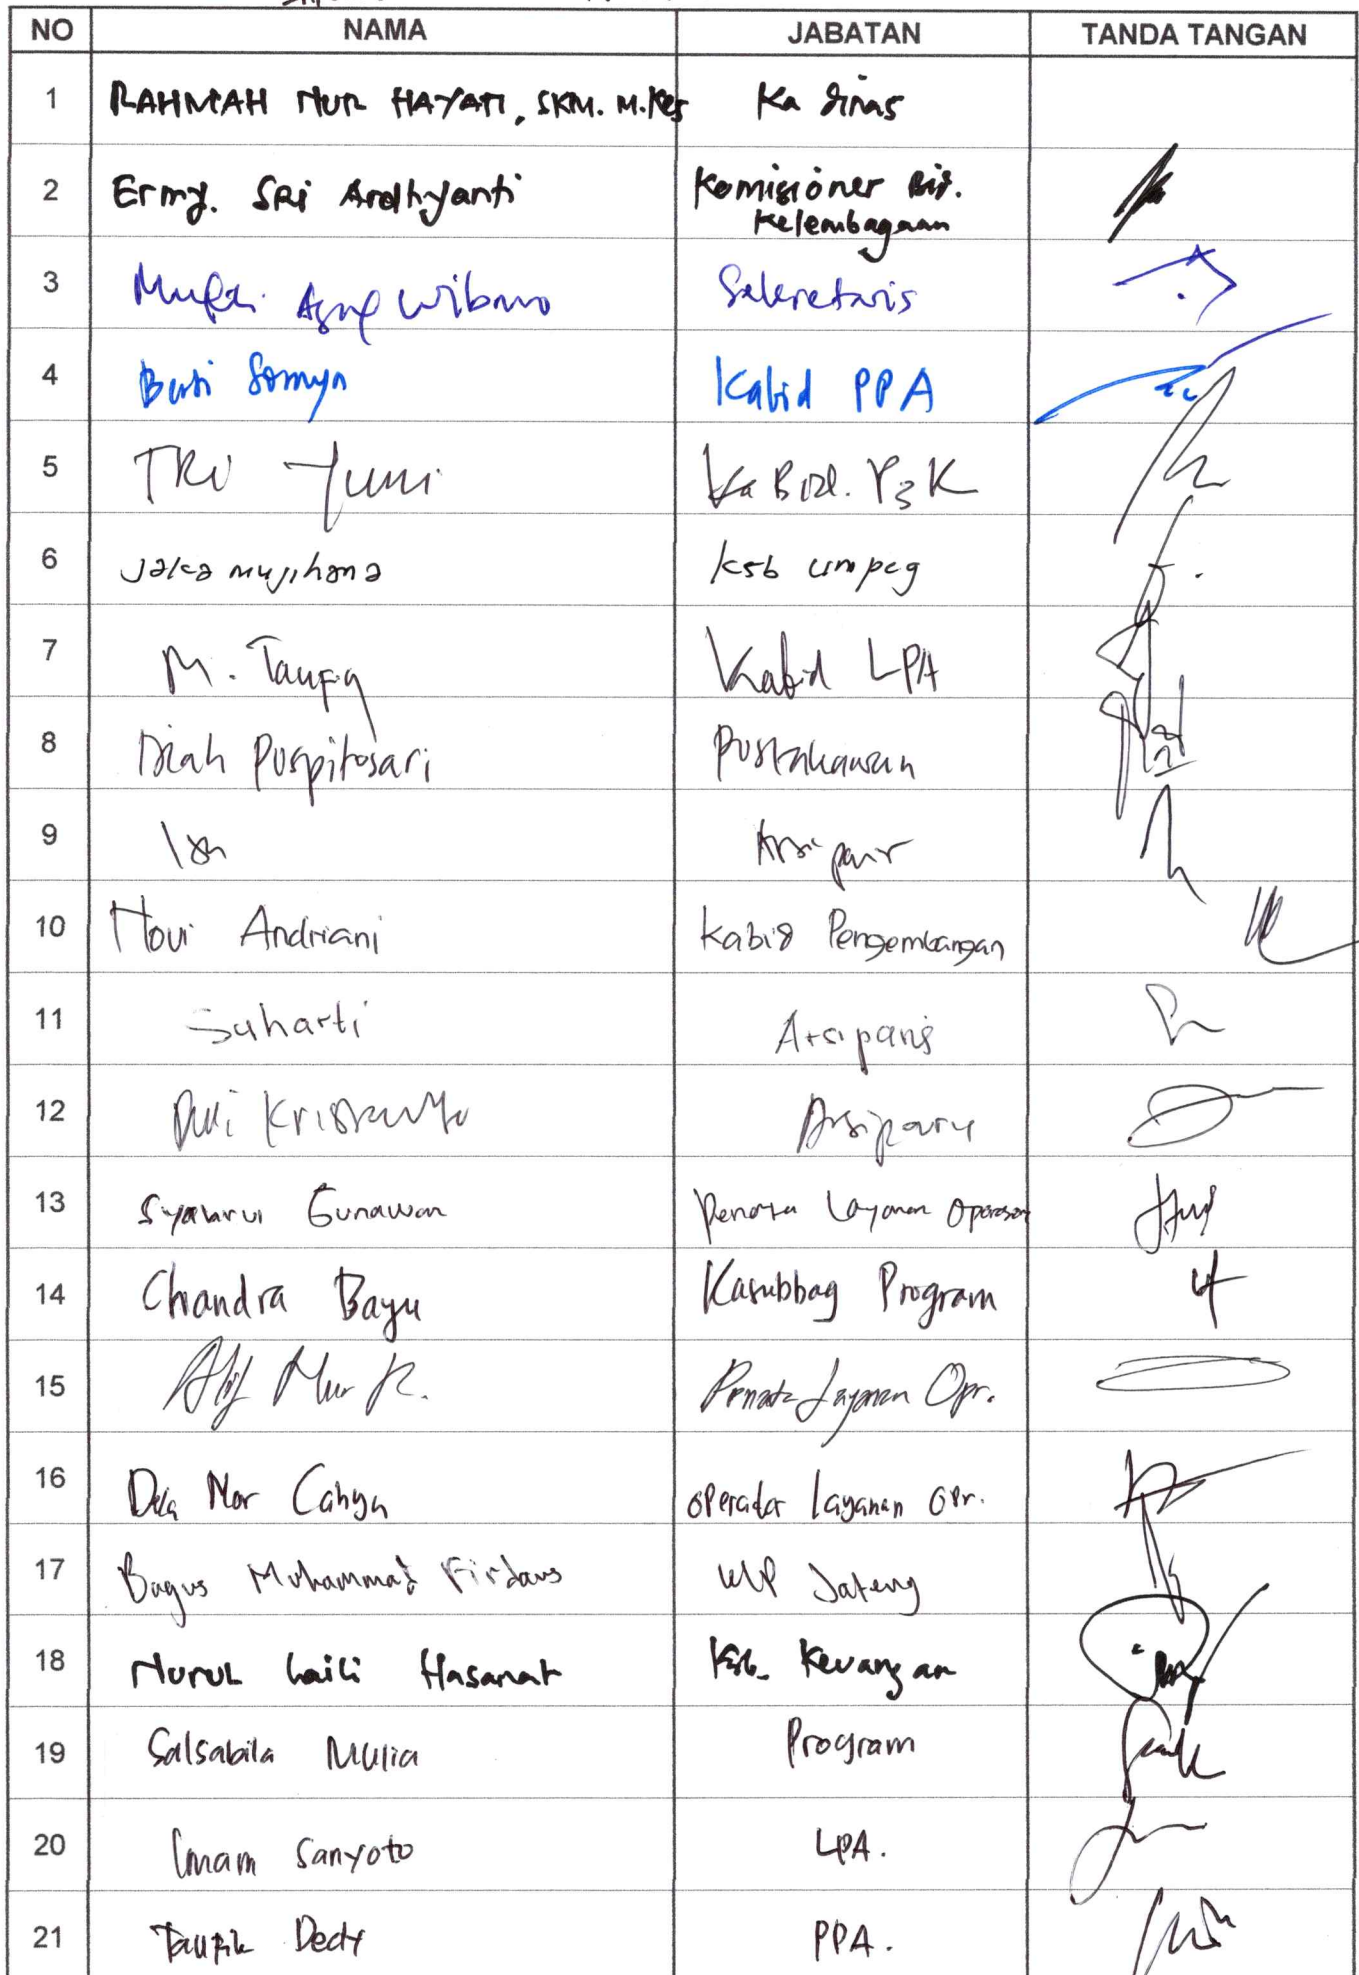 NO NAMA JABATAN TANDA TANGAN
1 RAHMAH NUR HAYATI, SKM. M.Kes Ka dinas
2 Ermy. SRi Ardhyanti Komisioner Bid.
Kelembagaan
3 Agung Wibowo Sekretaris
4 Kabid PPA
5 TRi Yuni Ka Bid. P3K
6 Jaka mujihana ksb umpeg
7 M. Taufiq Kabid LPA
8 Diah Puspitosari Pustakawan
9 Arsiparis
10 Novi Andriani Kabid Pengembangan
11 Suharti Arsiparis
12 Kristanto Arsiparis
13 Syahrul Gunawan Penata Layanan Operasion
14 Chandra Bayu Kasubbag Program
15 Alif Nur R. Penata Layanan Opr.
16 Nor Cahya Operator layanan Opr.
17 Bagus Muhammad Firdaus Jateng
18 Nurul Laili Hasanat Ksb. Keuangan
19 Salsabila Mulia Program
20 Imam Sanyoto LPA.
21 Taufik Dedy PPA.